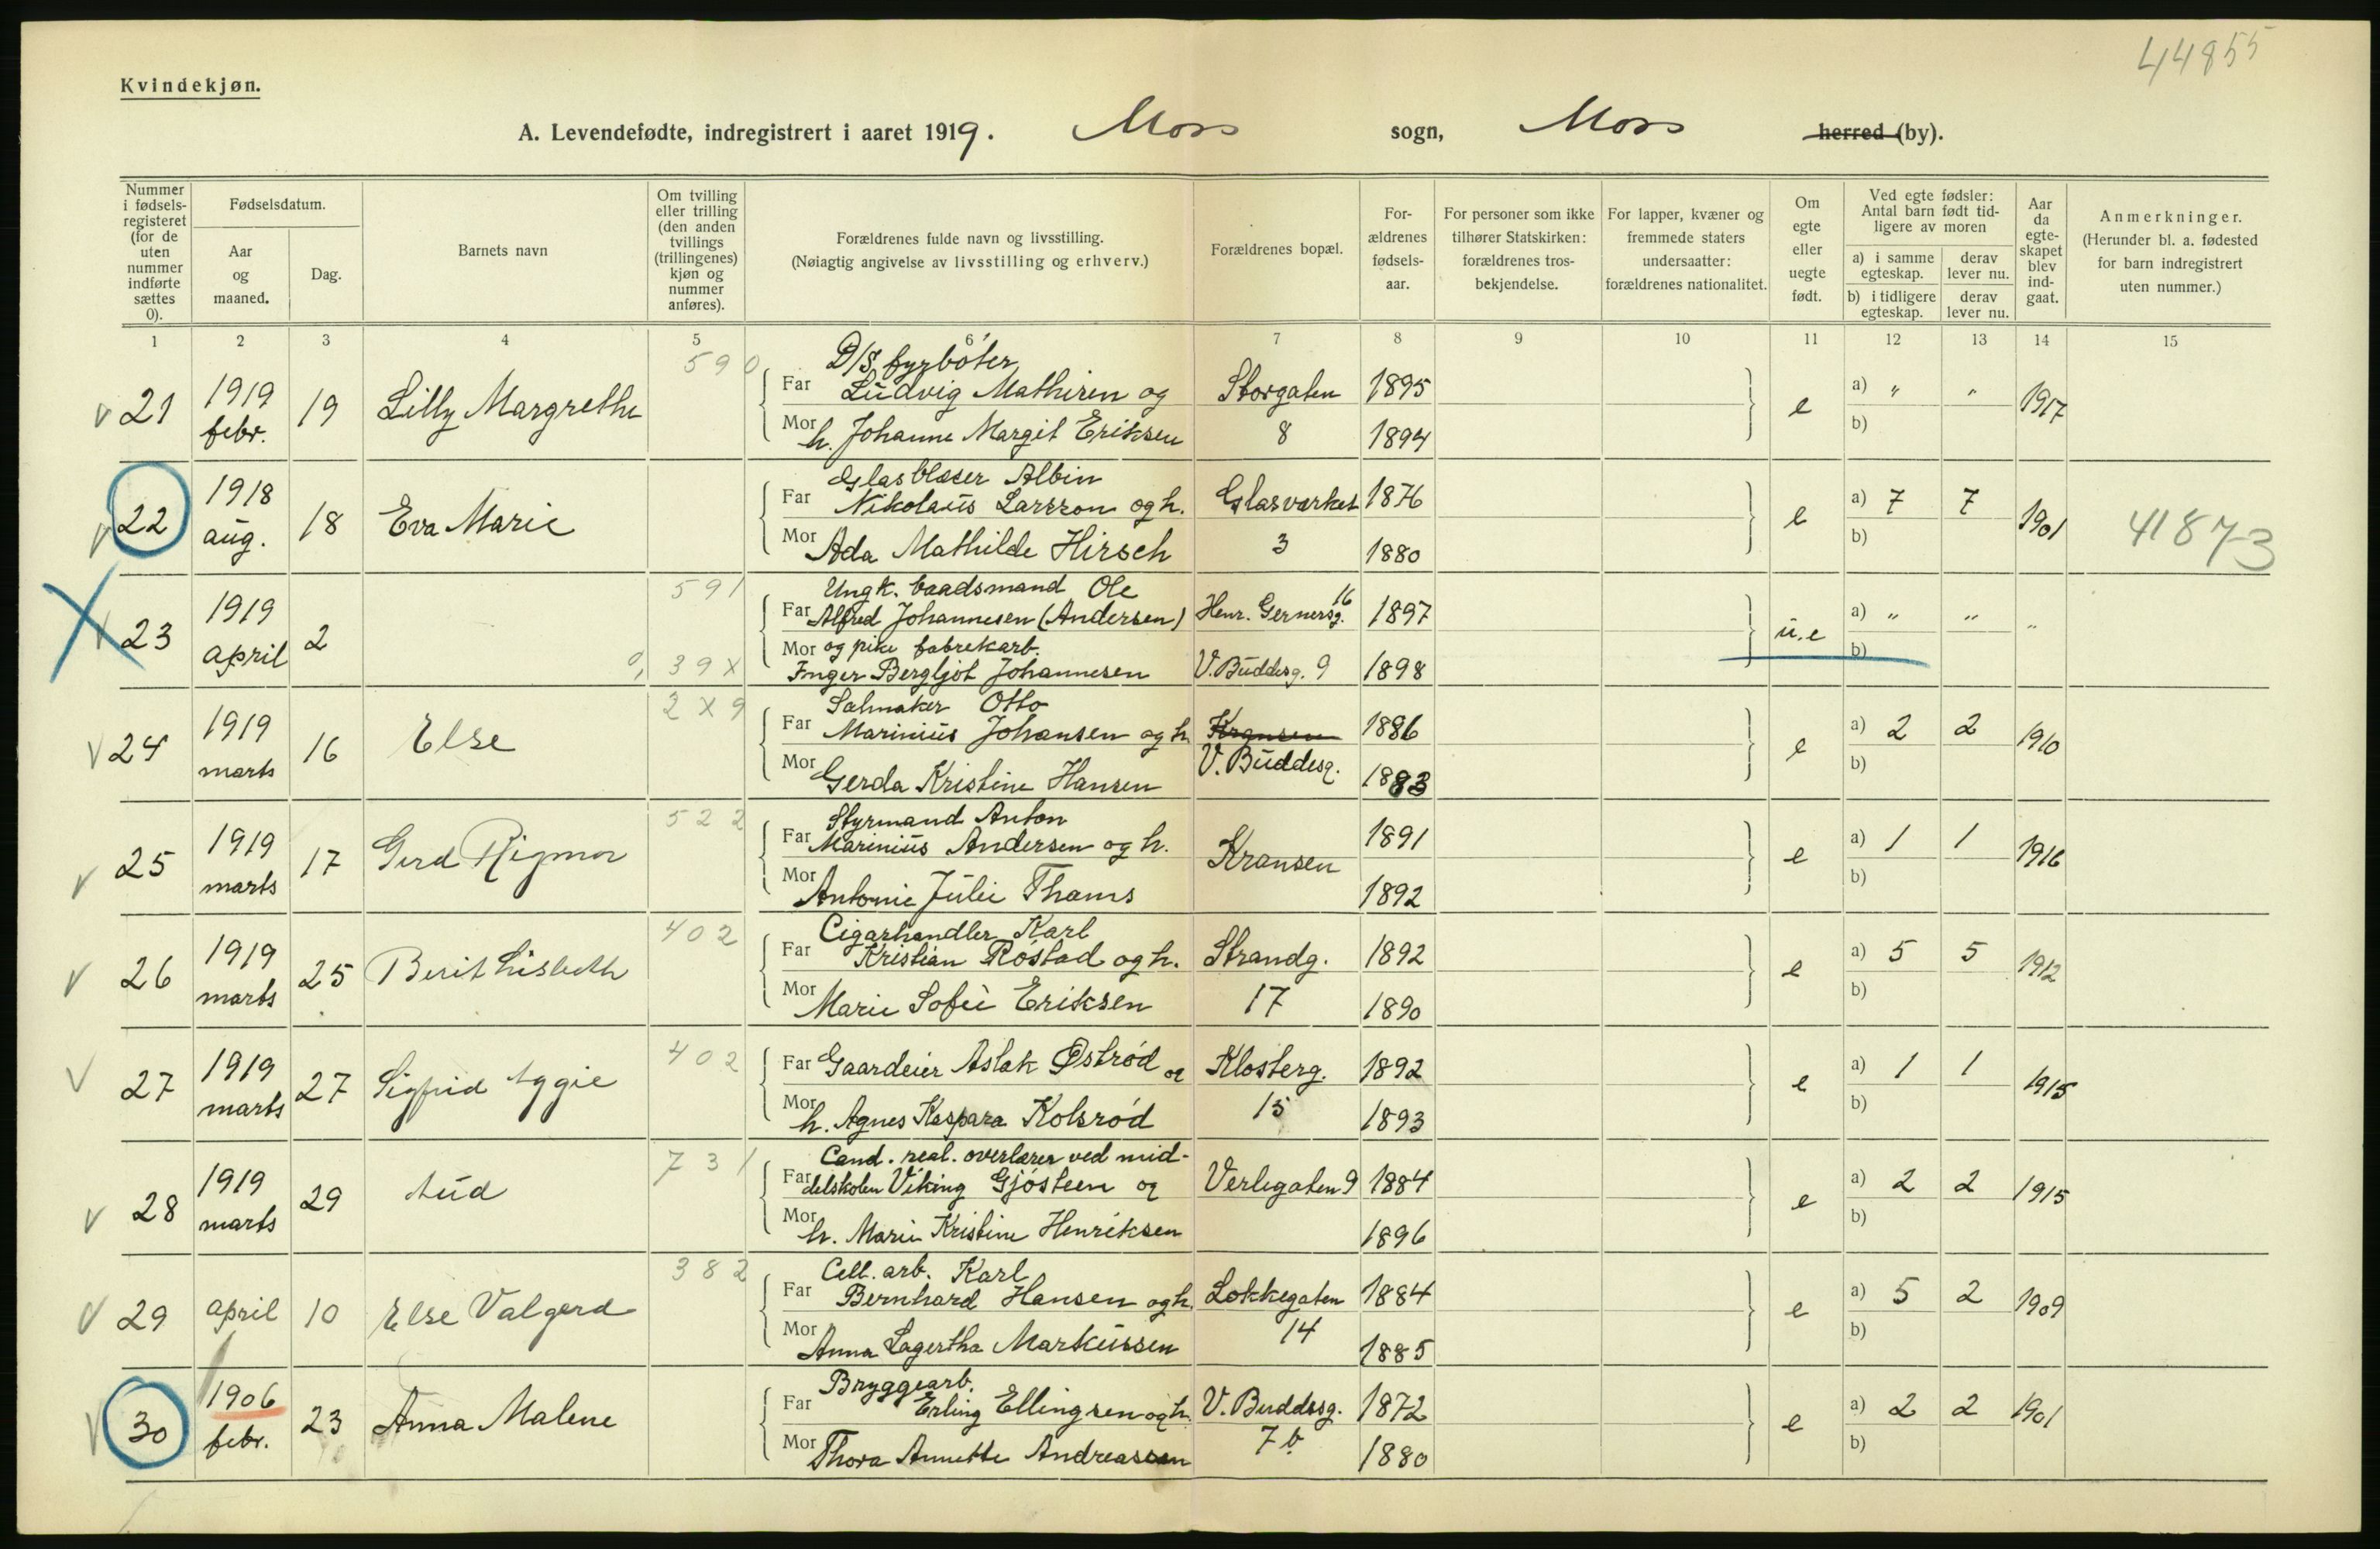 44855
Kvindekjøn.
A. Levendefødte, indregistrert i aaret 1919. Moss sogn, Moss herred (by).
Nummer i fødsels-registeret (for de uten nummer indførte sættes 0).
Fødselsdatum.
Aar og maaned.
Dag.
Barnets navn
Om tvilling eller trilling (den anden tvillings (trillingenes) kjøn og nummer anføres).
Forældrenes fulde navn og livsstilling.
(Nøiagtig angivelse av livsstilling og erhverv.)
Forældrenes bopæl.
For-ældrenes fødsels-aar.
For personer som ikke tilhører Statskirken: forældrenes tros-bekjendelse.
For lapper, kvæner og fremmede staters undersaatter: forældrenes nationalitet.
Om egte eller uegte født.
Ved egte fødsler: Antal barn født tid-ligere av moren
a) i samme egteskap.
derav lever nu.
b) i tidligere egteskap.
derav lever nu.
Aar da egte-skapet blev ind-gaat.
Anmerkninger.
(Herunder bl. a. fødested for barn indregistrert uten nummer.)
1 2 3 4 5 6 7 8 9 10 11 12 13 14 15
590 D/S fyrbøter
21 1919 febr. 19 Lilly Margrethe Far Ludvig Mathisen og Storgaten 1895 e a) " " 1917
Mor h. Johanne Margit Eriksen 8 1894 b)
Glasblæser Albin
22 1918 aug. 18 Eva Marie Far Nikolaus Larsson og h. Glasværket 1876 e a) 7 7 1901 41873
Mor Ada Mathilde Hirsch 3 1880 b)
591 Ungk. baadsmand Ole
23 1919 april 2 Far Alfred Johannesen (Andersen) Henr. Gernersg. 16 1897 u.e a) " " "
Mor og pike fabrekarb. b)
0, 39X Inger Bergljot Johannesen V. Buddesg. 9 1898
2X9 Salmaker Otto
24 1919 marts 16 Else Far Marinius Johansen og h. Kransen 1886 e a) 2 2 1910
Mor Gerda Kristine Hansen V. Buddesg. 1883 b)
522 Styrmand Anton
25 1919 marts 17 Gerd Rigmor Far Marinius Andersen og h. Kransen 1891 e a) 1 1 1916
Mor Antonie Julie Thams 1892 b)
402 Cigarhandler Karl
26 1919 marts 25 Berit Lisbeth Far Kristian Røstad og h. Strandg. 1892 e a) 5 5 1912
Mor Marie Sofie Eriksen 17 1890 b)
402
27 1919 marts 27 Sigfrid Aggie Far Gaardeier Aslak Østrød og Klosterg. 1892 e a) 1 1 1915
Mor h. Agnes Kaspara Kolsrød 15 1893 b)
731 Cand. real. overlærer ved mid-
28 1919 marts 29 Aud Far delskolen Viking Gjøsteen og Verlegaten 9 1884 e a) 2 2 1915
Mor h. Marie Kristine Henriksen 1896 b)
382 Cell. arb. Karl
29 april 10 Else Valgerd Far Bernhard Hansen og h. Løkkegaten 1884 e a) 5 2 1909
Mor Anna Lagertha Markussen 14 1885 b)
Bryggearb.
30 1906 febr. 23 Anna Malene Far Erling Ellingsen og h. V. Buddesg. 1872 e a) 2 2 1901
Mor Thora Annette Andreassen 7b 1880 b)